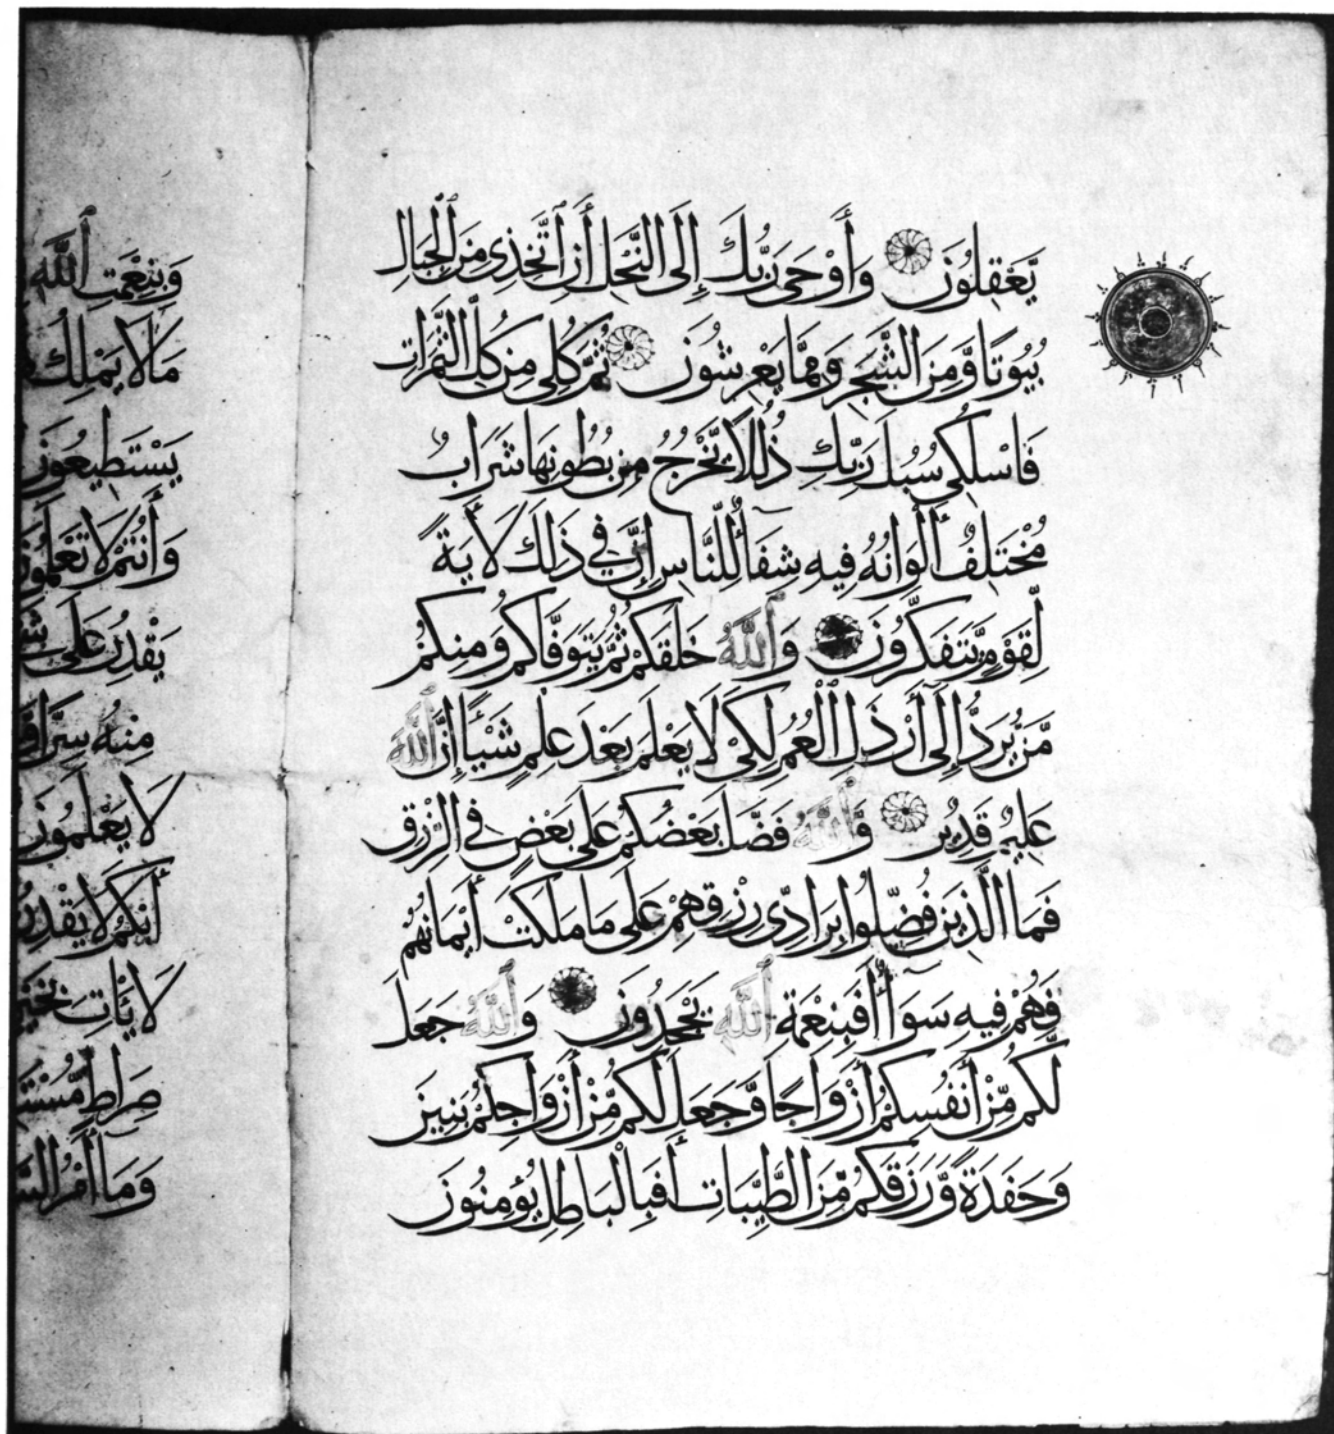 يَّعْقِلُونَ وَأَوْحَى رَبُّكَ إِلَى النَّحْلِ أَنِ ٱتَّخِذِى مِنَ ٱلْجِبَالِ
بُيُوتًا وَّمِنَ الشَّجَرِ وَمِمَّا يَعْرِشُونَ ثُمَّ كُلِى مِنْ كُلِّ الثَّمَرَاتِ
فَاسْلُكِى سُبُلَ رَبِّكِ ذُلُلًا يَّخْرُجُ مِنْ بُطُونِهَا شَرَابٌ
مُخْتَلِفٌ أَلْوَانُهُ فِيهِ شِفَآءٌ لِلنَّاسِ إِنَّ فِي ذَلِكَ لَأَيَةً
لِّقَوْمٍ يَّتَفَكَّرُونَ وَٱللَّهُ خَلَقَكُمْ ثُمَّ يَتَوَفَّاكُمْ وَمِنكُمْ
مَّنْ يُرَدُّ إِلَى أَرْذَلِ ٱلْعُمُرِ لِكَىْ لَا يَعْلَمَ بَعْدَ عِلْمٍ شَيْئًا إِنَّ ٱللَّهَ
عَلِيمٌ قَدِيرٌ وَٱللَّهُ فَضَّلَ بَعْضَكُمْ عَلَى بَعْضٍ فِي الرِّزْقِ
فَمَا الَّذِينَ فُضِّلُوا بِرَادِّى رِزْقِهِمْ عَلَى مَا مَلَكَتْ أَيْمَانُهُمْ
فَهُمْ فِيهِ سَوَآءٌ أَفَبِنِعْمَةِ ٱللَّهِ يَجْحَدُونَ وَٱللَّهُ جَعَلَ
لَكُم مِّنْ أَنفُسِكُمْ أَزْوَاجًا وَّجَعَلَ لَكُم مِّنْ أَزْوَاجِكُمْ بَنِينَ
وَحَفَدَةً وَّرَزَقَكُم مِّنَ الطَّيِّبَاتِ أَفَبِالْبَاطِلِ يُؤْمِنُونَ
وَبِنِعْمَتِ ٱللَّهِ
مَا لَا يَمْلِكُ
يَسْتَطِيعُونَ
وَأَنْتُمْ لَا تَعْلَمُونَ
يَقْدِرُ عَلَى
مِنْهُ سِرًّا
لَا يَعْلَمُونَ
أَبْكَمُ لَا يَقْدِرُ
لَا يَأْتِ بِخَيْرٍ
صِرَاطٍ
وَمَا أَمْرُ